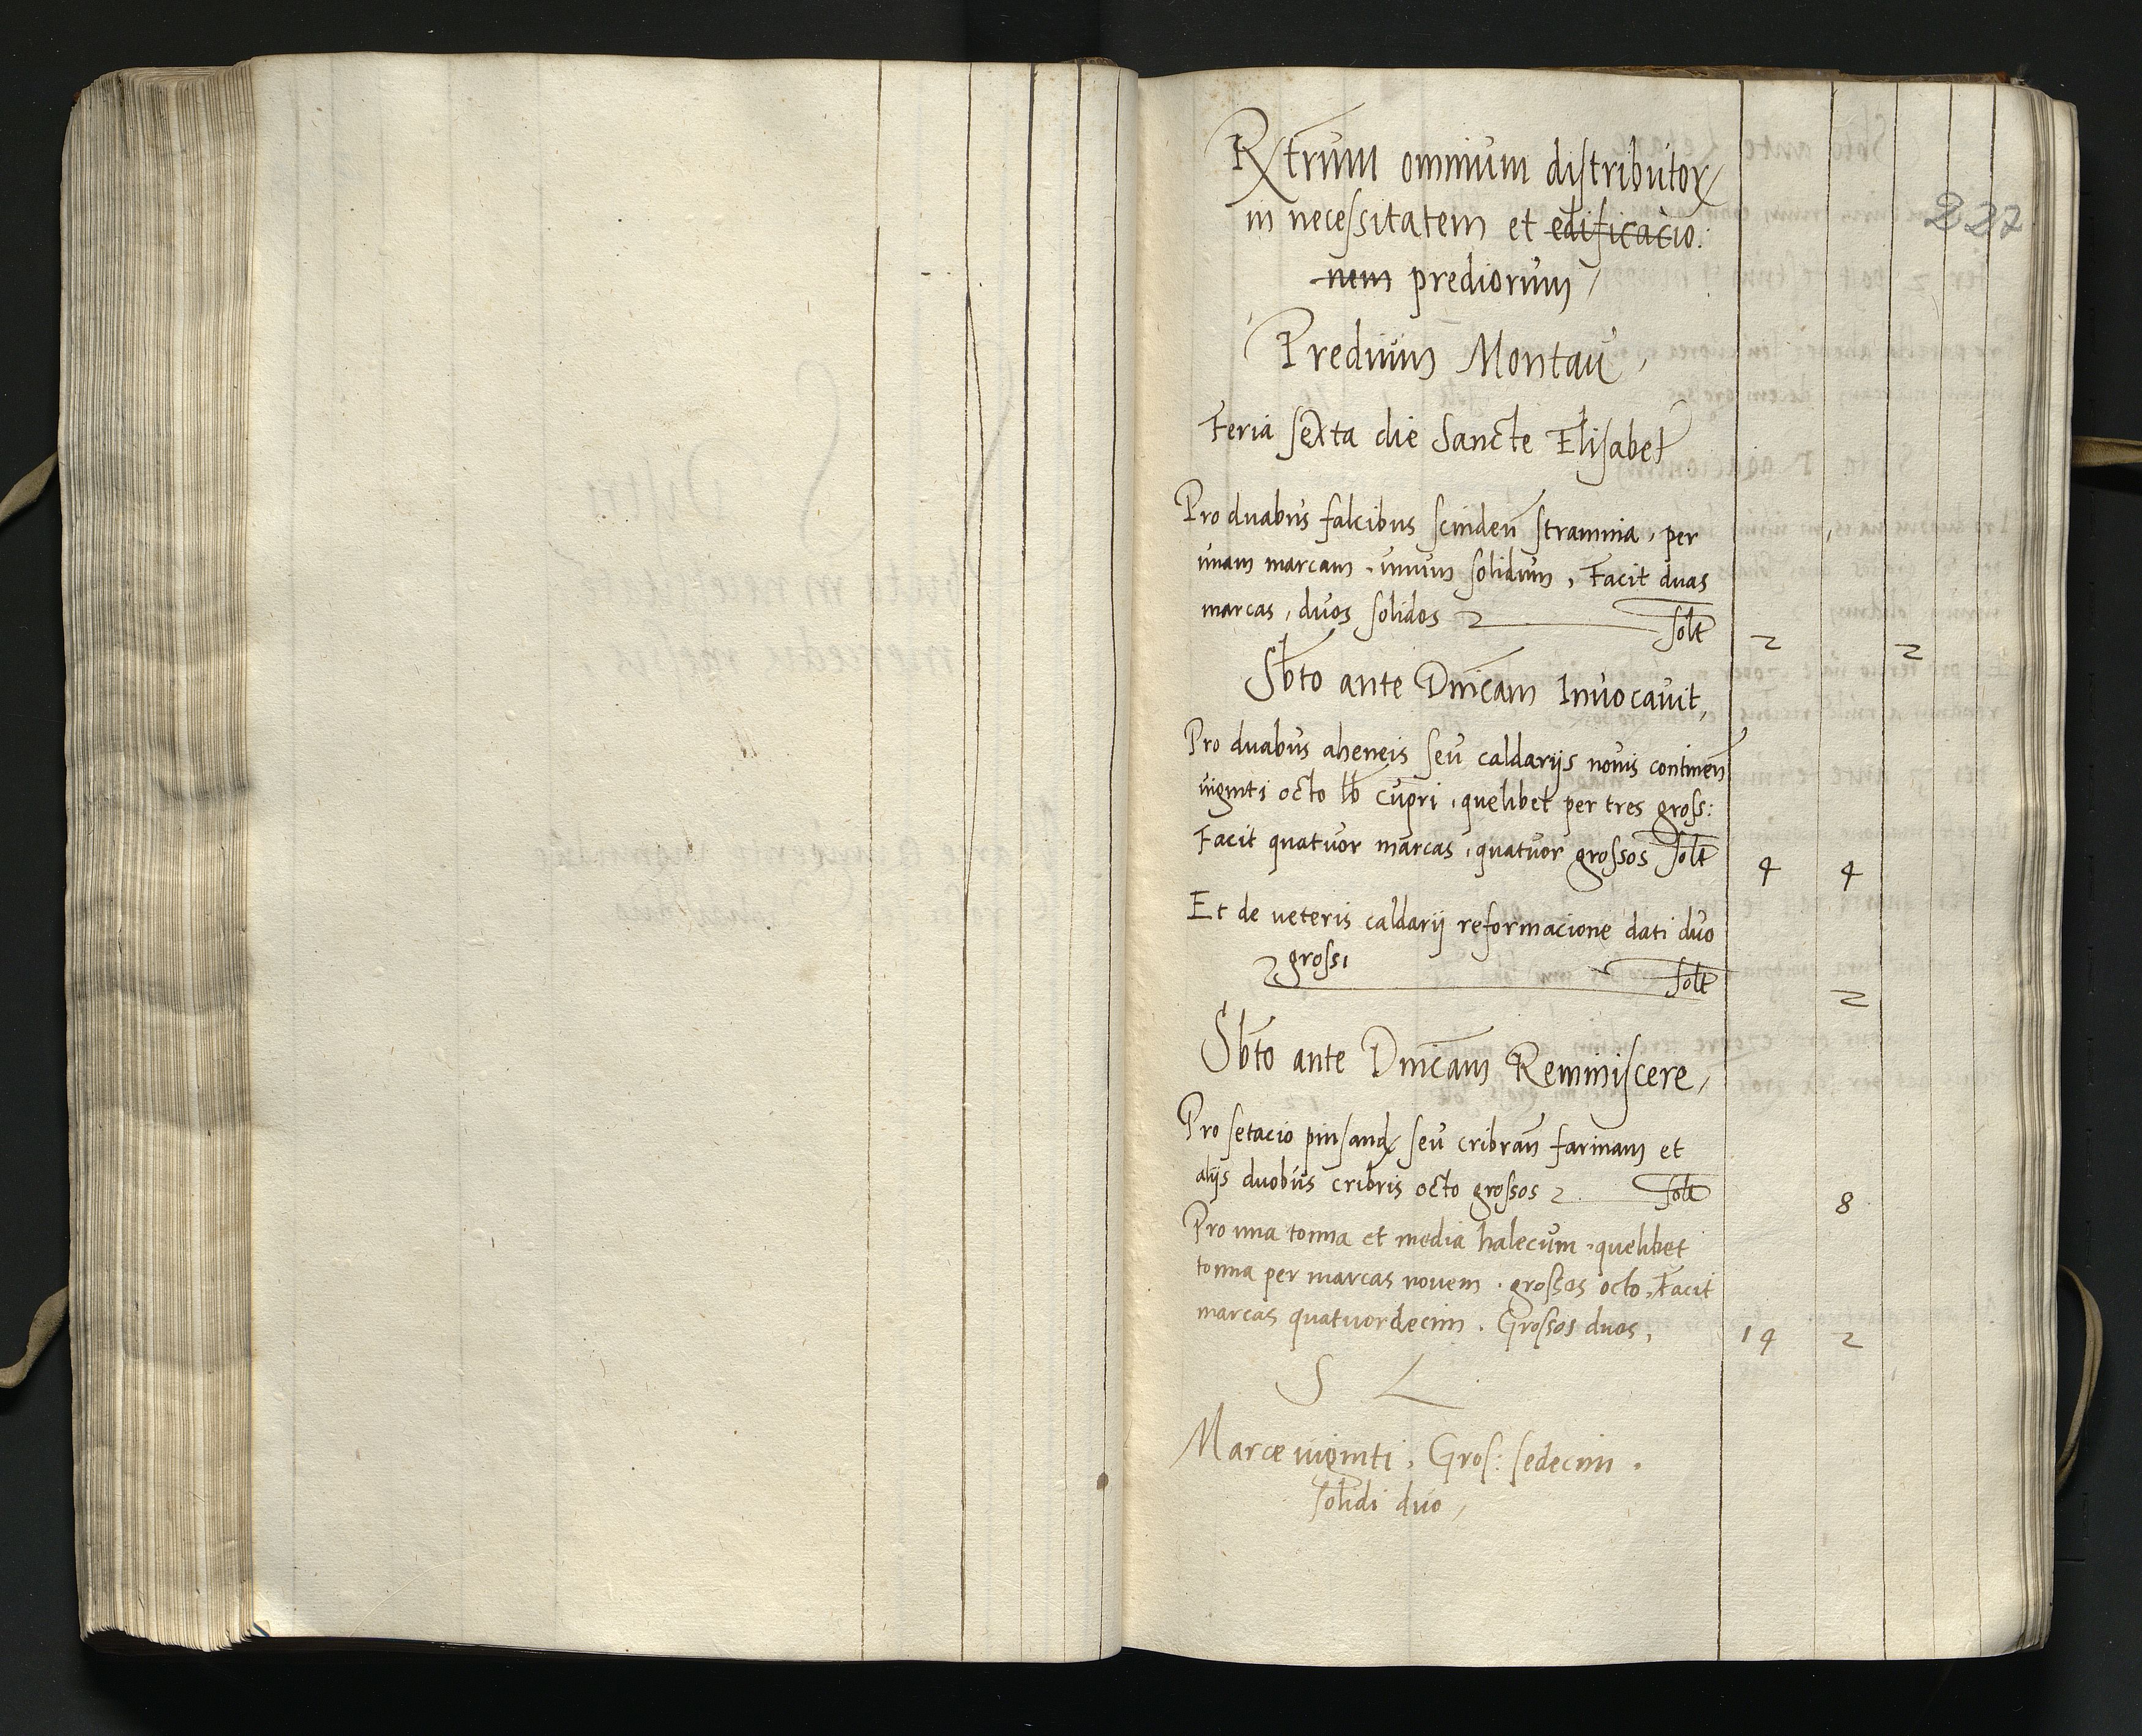 Rxtrum omnium distributor
in necessitatem et edificacio.
nem prediorum
227
Predium Montau
Feria sexta die Sancte Elisabet
Pro duabus falcibus scinden stramina, per
unam marcam. unum solidum, Facit duas
marcas, duos solidos solt 2 2
Sbto ante Dnicam Invocavit,
Pro duabus aheneis seu caldarijs novis continen
viginti octo lb cupri, quelibet per tres gross:
Facit quatuor marcas, quatuor grossos solt 4 4
Et de veteris caldarij reformacione dati duo
grossi solt 2
Sbto ante Dnicam Reminiscere,
Pro setacio pinsand seu cribran farinam et
alijs duobus cribris octo grossos solt 8
Pro una tonna et media halecum, quelibet
tonna per marcas novem. grossos octo, Facit
marcas quatuordecim. Grossos duos, 14 2
S L
Marce viginti, Gros: sedecim.
solidi duo,